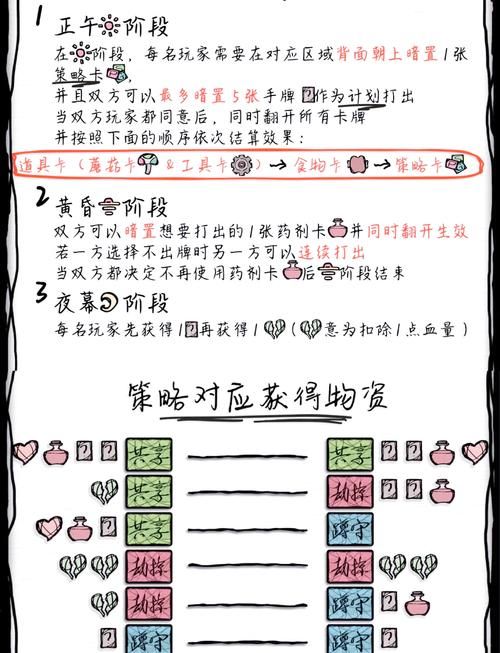 1 正午阶段
在阶段，每名玩家需要在对应区域背面朝上暗置1张
策略卡
并且双方可以最多暗置5张手牌作为计划打出
当双方玩家都同意后，同时翻开所有卡牌
并按照下面的顺序依次结算效果：
道具卡（蘑菇卡 & 工具卡）→ 食物卡 → 策略卡
2 黄昏阶段
双方可以暗置想要打出的1张药剂卡并同时翻开生效
若一方选择不出牌时另一方可以连续打出
当双方都决定不再使用药剂卡后阶段结束
3 夜幕阶段
每名玩家先获得1再获得1（意为扣除1点血量）
策略对应获得物资
共享 共享
共享 劫掠
共享 蹲守
劫掠 劫掠
劫掠 蹲守
蹲守 蹲守